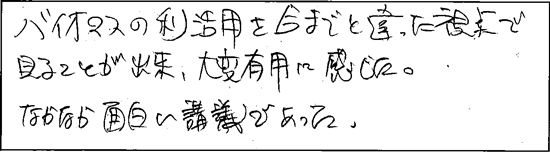 バイオマスの利活用を今までと違った視点で
見ることが出来、大変有用に感じた。
なかなか面白い講義であった。